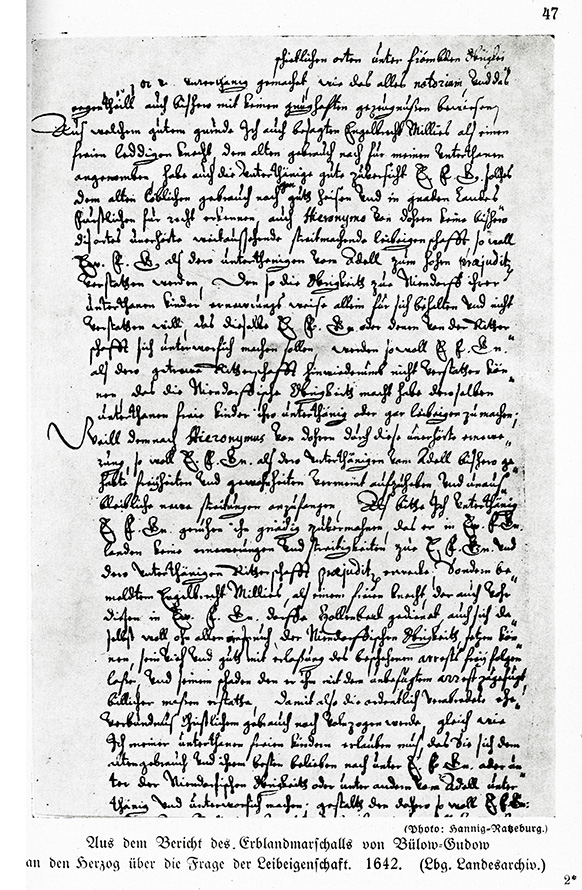 47
orten unter
unterthänig gemachet, wie das alles notorium, und das
gegentheill auch bishero mit keinen gezeugnissen bewiesen,
Aus welchem gutem grunde Ich auch besagten Engelbrecht Millies als einen
freien leddigen knecht dem alten gebrauch nach für meinen Unterthanen
angenommen, habe auch die Unterthänige gute zuversicht E. F. G.
dem alten löblichen gebrauch nach gutt heisen und in gnaden
Fürstlichen für recht erkennen, auch Hieronymo von dohren keine bishero
unerhörte leibeigenschafft, so woll
Ew. F. G. als dero unterthenigen vom Adell zum hohn præjuditz
verstatten werden, Den so die Obrigkeitt zue Niendorff ihrer
unterthanen kinder weise allein für sich behalten und nicht
verstatten will, das dieselbe E. F. Gn oder denen von der Ritter-
schafft sich unterwerffich machen sollen, werden so woll E. F. Gn.
als dero getrewe Ritterschafft hinwiederumb nicht verstatten kön-
nen, das die Niendorffische Obrigkeitt macht habe deroselben
unterthanen freie kinder ihro unterthänig oder gar leibeigen zu machen,
Weill demnach Hieronymus von dohren durch diese unerhörte
so woll E. F. Gn. als dero unterthänigen vom Adell bishero ge-
habte freyheiten und gewohnheiten vermeint auffzuheben und
newe streitungen anzufangen, Als bitte Ich Unterthänig
E. F. Gn. geruhen ihn gnädig das er in Ew. F. Gn.
landen keine und streitigkeiten zue E. F. Gn. und
dero Unterthänigen Ritterschafft præjuditz erwecke, Sondern be-
meldtem Engelbrecht Millies, als einem freien knecht der auch
diesen in Ew. F. Gn. dorffe Hollenbeck gedienet, auch sich da-
selbst woll ohn allen anspruch der Niendorffischen Obrigkeitt setzen kön-
nen, sein und gutt mit erlassung des beschehenen arrests frey folgen
lasse, und seinem schaden den er ihn mit dem unbefugtem arrest zugefügt,
billicher massen erstatte, Damit also die ordentlich ehe-
verbündnus Christlichem gebrauch nach vollnzogen werde, gleich wie
Ich meiner unterthanen freien kindern erlauben mus, das Sie sich dem
alten gebrauch und ihrem besten belieben nach unter E. F. Gn. oder un-
ter der Niendorffischen Obrigkeitt oder unter andern vom Adell unter-
thänig und unterwerffich machen, gestalt den dahero so woll E. F. Gn.
(Photo: Hannig-Ratzeburg.)
Aus dem Bericht des Erblandmarschalls von Bülow-Gudow
an den Herzog über die Frage der Leibeigenschaft. 1642. (Lbg. Landesarchiv.)
2*